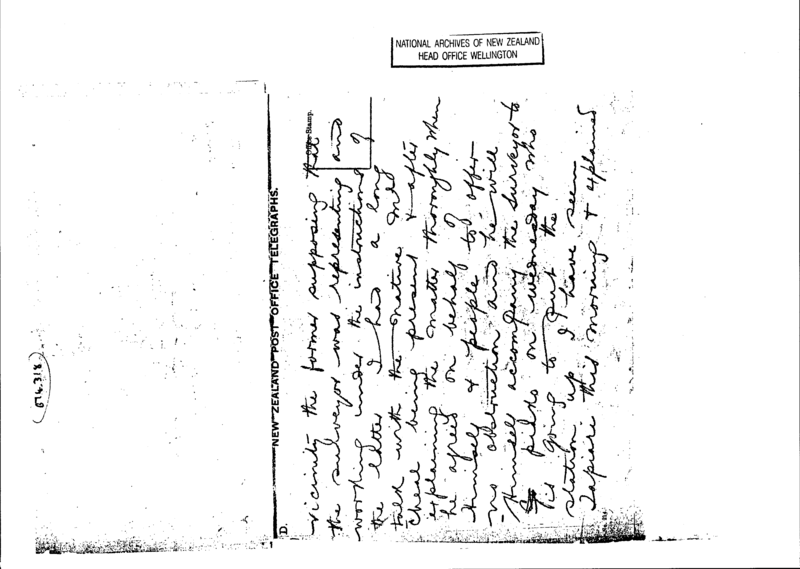 NATIONAL ARCHIVES OF NEW ZEALAND
HEAD OFFICE WELLINGTON
D.
NEW ZEALAND POST OFFICE TELEGRAPHS.
Office Stamp.
vicinity the former supposing that
the surveyor was representing and
working under the instructions of
the latter I had a long
talk with the native Mr
Cheal being present & after
explaining the matter thoroughly when
he agreed on behalf of
himself & people to offer
no obstruction and he will
himself accompany the surveyor to
on Wednesday who
is going to put the
station up I have seen
this morning & explained